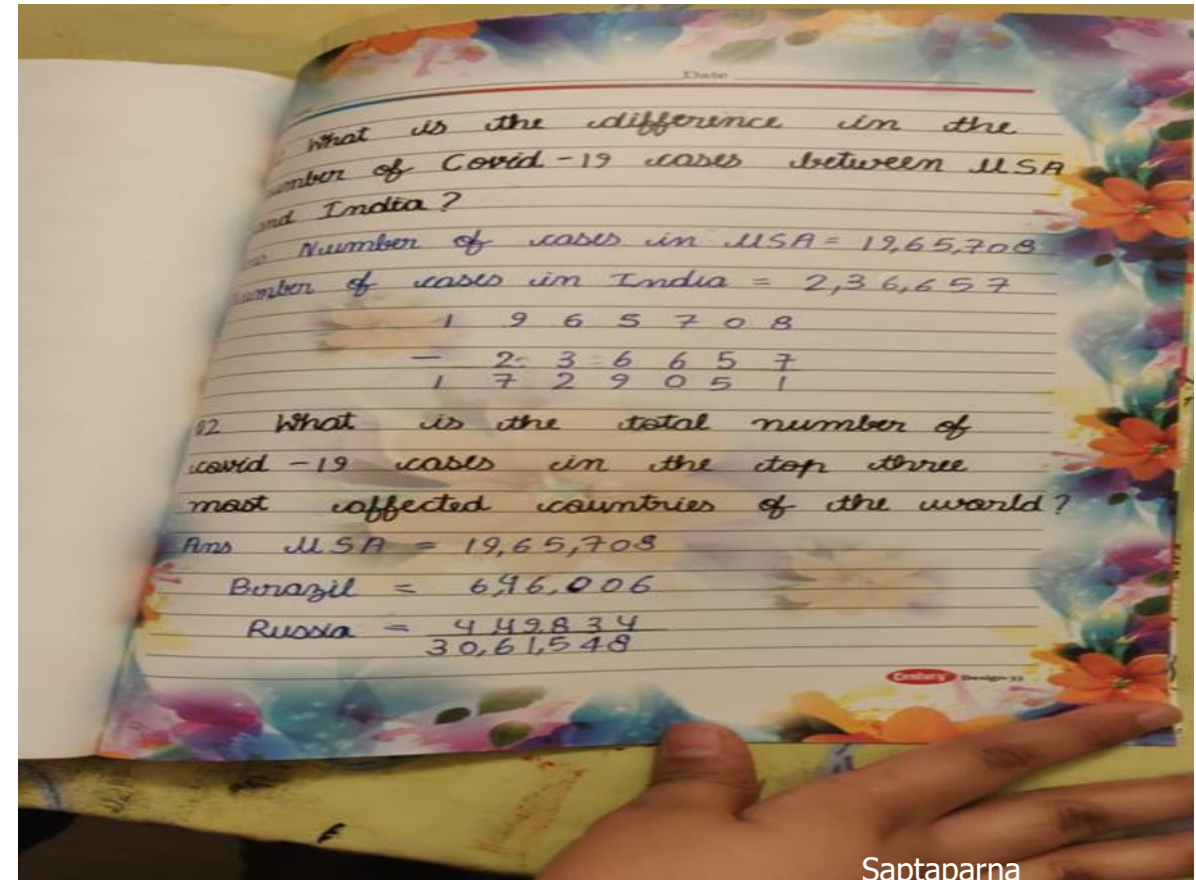 Date
What is the difference in the
umber of Covid-19 cases between USA
and India?
Number of cases in USA = 19,65,708
umber of cases in India = 2,36,657
1 9 6 5 7 0 8
- 2 3 6 6 5 7
1 7 2 9 0 5 1
Q2 What is the total number of
covid-19 cases in the top three
most affected countries of the world?
Ans USA = 19,65,708
Burazil = 6,46,006
Russia = 4,49,834
30,61,548
Century Design-33
Saptaparna